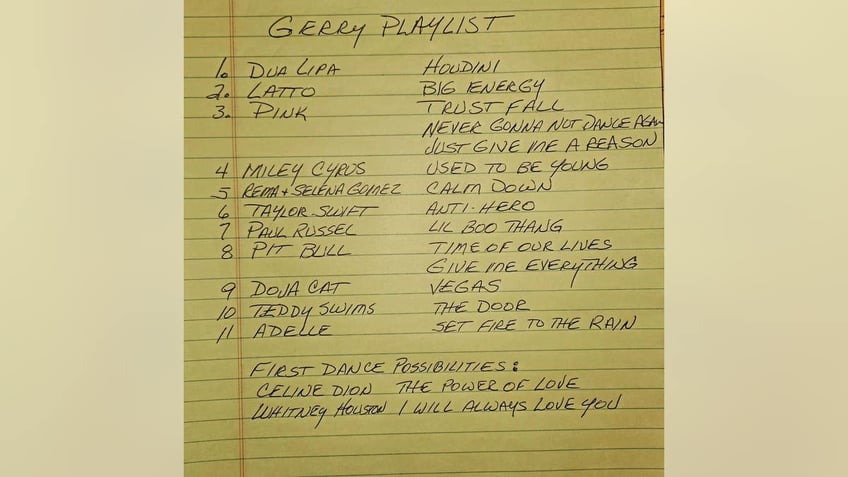 GERRY PLAYLIST
1. DUA LIPA HOUDINI
2. LATTO BIG ENERGY
3. PINK TRUST FALL
NEVER GONNA NOT DANCE AGAIN
JUST GIVE ME A REASON
4 MILEY CYRUS USED TO BE YOUNG
5 REMA + SELENA GOMEZ CALM DOWN
6 TAYLOR SWIFT ANTI-HERO
7 PAUL RUSSEL LIL BOO THANG
8 PIT BULL TIME OF OUR LIVES
GIVE ME EVERYTHING
9 DOJA CAT VEGAS
10 TEDDY SWIMS THE DOOR
11 ADELLE SET FIRE TO THE RAIN
FIRST DANCE POSSIBILITIES:
CELINE DION THE POWER OF LOVE
WHITNEY HOUSTON I WILL ALWAYS LOVE YOU